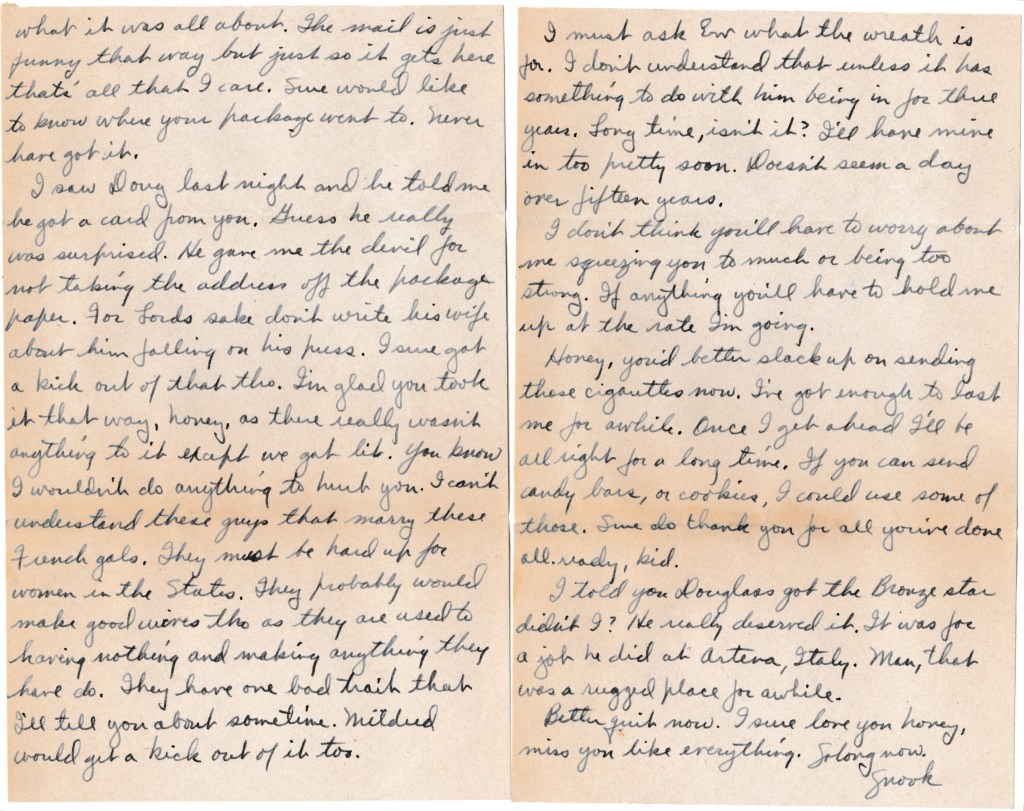 what it was all about. The mail is just
funny that way but just so it gets here
thats' all that I care. Sure would like
to know where your package went to. Never
have got it.
I saw Doug last night and he told me
he got a card from you. Guess he really
was surprised. He gave me the devil for
not taking the address off the package
paper. For Lords sake don't write his wife
about him falling on his puss. I sure got
a kick out of that tho. I'm glad you took
it that way, honey, as there really wasn't
anything to it except we got lit. You know
I wouldn't do anything to hurt you. I can't
understand these guys that marry these
French gals. They must be hard up for
women in the States. They probably would
make good wives tho as they are used to
having nothing and making anything they
have do. They have one bad trait that
I'll tell you about sometime. Mildred
would get a kick out of it too.
I must ask Erv what the wreath is
for. I don't understand that unless it has
something to do with him being in for three
years. Long time, isn't it? I'll have mine
in too pretty soon. Doesn't seem a day
over fifteen years.
I don't think you'll have to worry about
me squeezing you to much or being too
strong. If anything you'll have to hold me
up at the rate I'm going.
Honey, you'd better slack up on sending
those cigarettes now. I've got enough to last
me for awhile. Once I get ahead I'll be
all right for a long time. If you can send
candy bars, or cookies, I could use some of
those. Sure do thank you for all you've done
all.ready, kid.
I told you Douglass got the Bronze star
didn't I? He really deserved it. It was for
a job he did at Artena, Italy. Man, that
was a rugged place for awhile.
Better quit now. I sure love you honey,
miss you like everything. So long now.
Snook